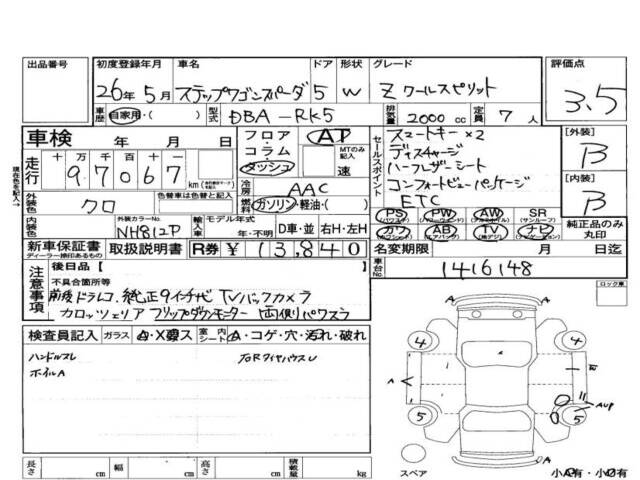 出品番号 初度登録年月 車名 ドア 形状 グレード 評価点
26年5月 ステップワゴンスパーダ 5 W Z クールスピリット 3.5
車歴 自家用・( ) 型式 DBA-RK5 排気量 2000 cc 定員 7 人
車検 年 月 日 フロア・コラム・ダッシュ AT MTのみ記入 速
走行 十万 万 千 百 十 一
97067 km
冷房 AAC
外装色 クロ 色替車は色替前の色 燃料 ガソリン・軽油・( )
内装色 外装カラーNo. NH812P 輸入車 モデル年式 年・不明 D車・並 右H・左H
新車保証書 ディーラー捺印あるもの 取扱説明書 R券 ¥ 13,840
セールスポイント
スマートキー×2
ディスチャージ
ハーフレザーシート
コンフォートビューパッケージ
ETC
PS PW AW SR
カワ AB TV ナビ
[外装] B
[内装] B
純正品のみ丸印
名変期限 月 日迄
車台No. 1416148
現在色を記入→
注意事項 後日品[ ]
不具合箇所等
前後ドラレコ、純正9インチナビ TV バックカメラ
カロッツェリア フリップダウンモニター 両側パワスラ
検査員記入 ガラス A・X要ス 室内シート A・コゲ・穴・汚れ・破れ
ハンドルスレ
ホイルA
ロック車
A
4 4
A
5 5
A
スペア 小A有・小U有
長さ cm 幅 cm 高さ cm 積載量 kg